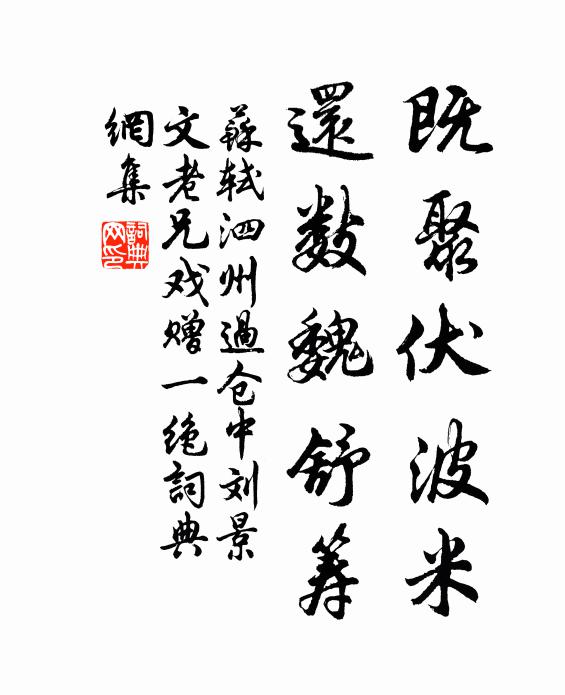 既聚伏波米
還数魏舒筹
蘇轼泗州過仓中刘景
文老兄戏赠一绝詞典
網集
詞典
网印